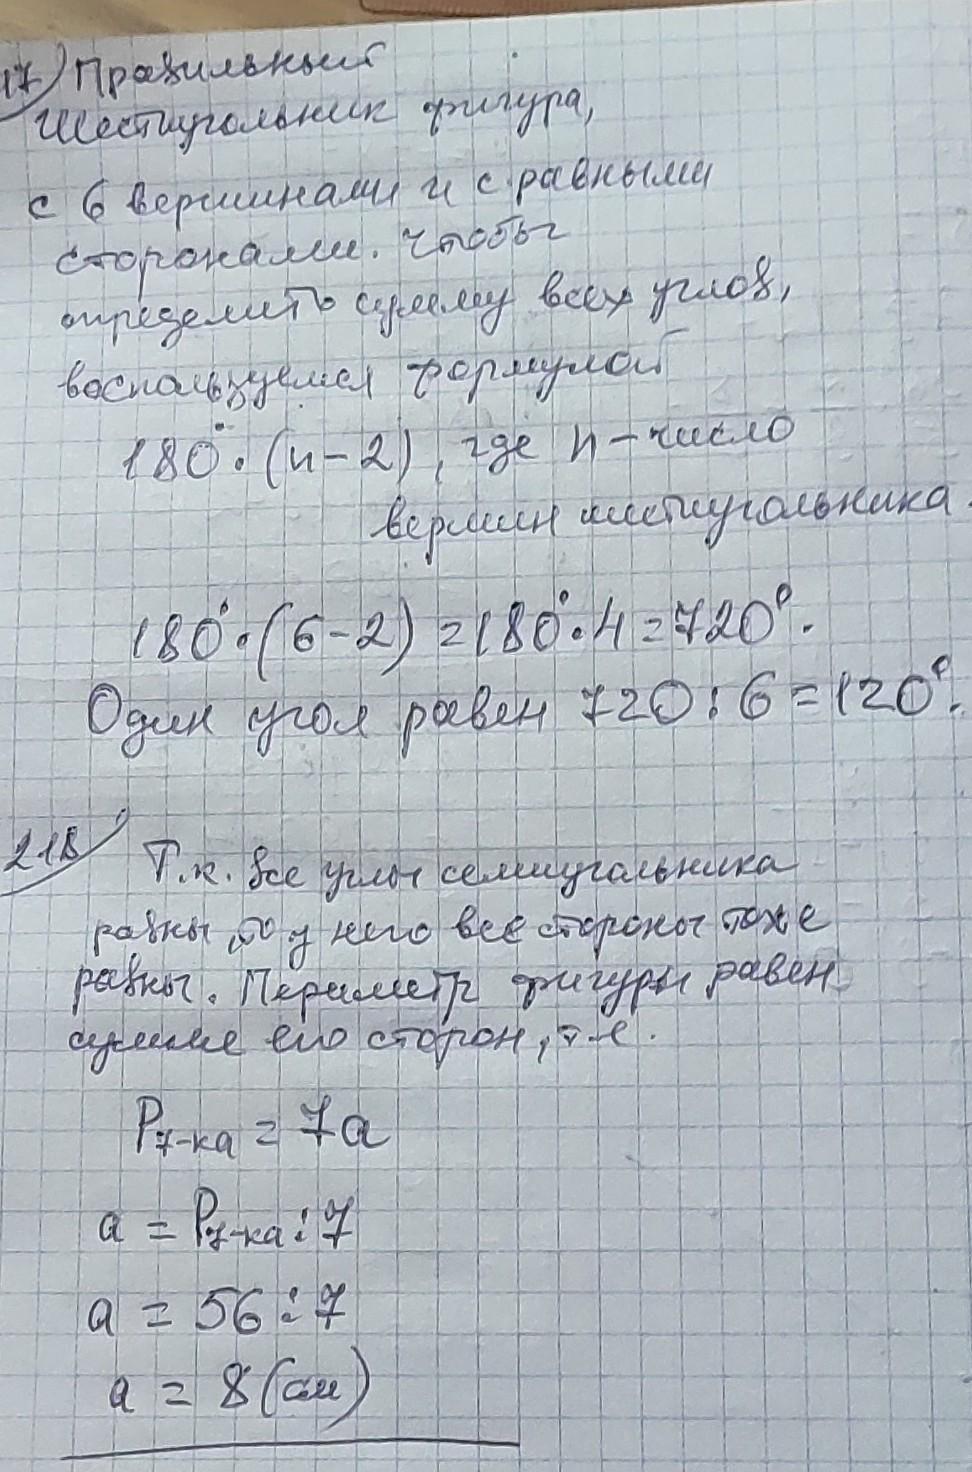 17) Правильный
Шестиугольник фигура,
с 6 вершинами и с равными
сторонами. Чтобы
определить сумму всех углов,
воспользуемся формулой
180°·(n-2), где n-число
вершин шестиугольника.
180°·(6-2)=180°·4=720°.
Один угол равен 720:6=120°.
218) Т.к. все углы семиугольника
равны, то у него все стороны тоже
равны. Периметр фигуры равен
сумме его сторон, т.е.
P7-ка = 7a
a = P7-ка : 7
a = 56 : 7
a = 8 (см)